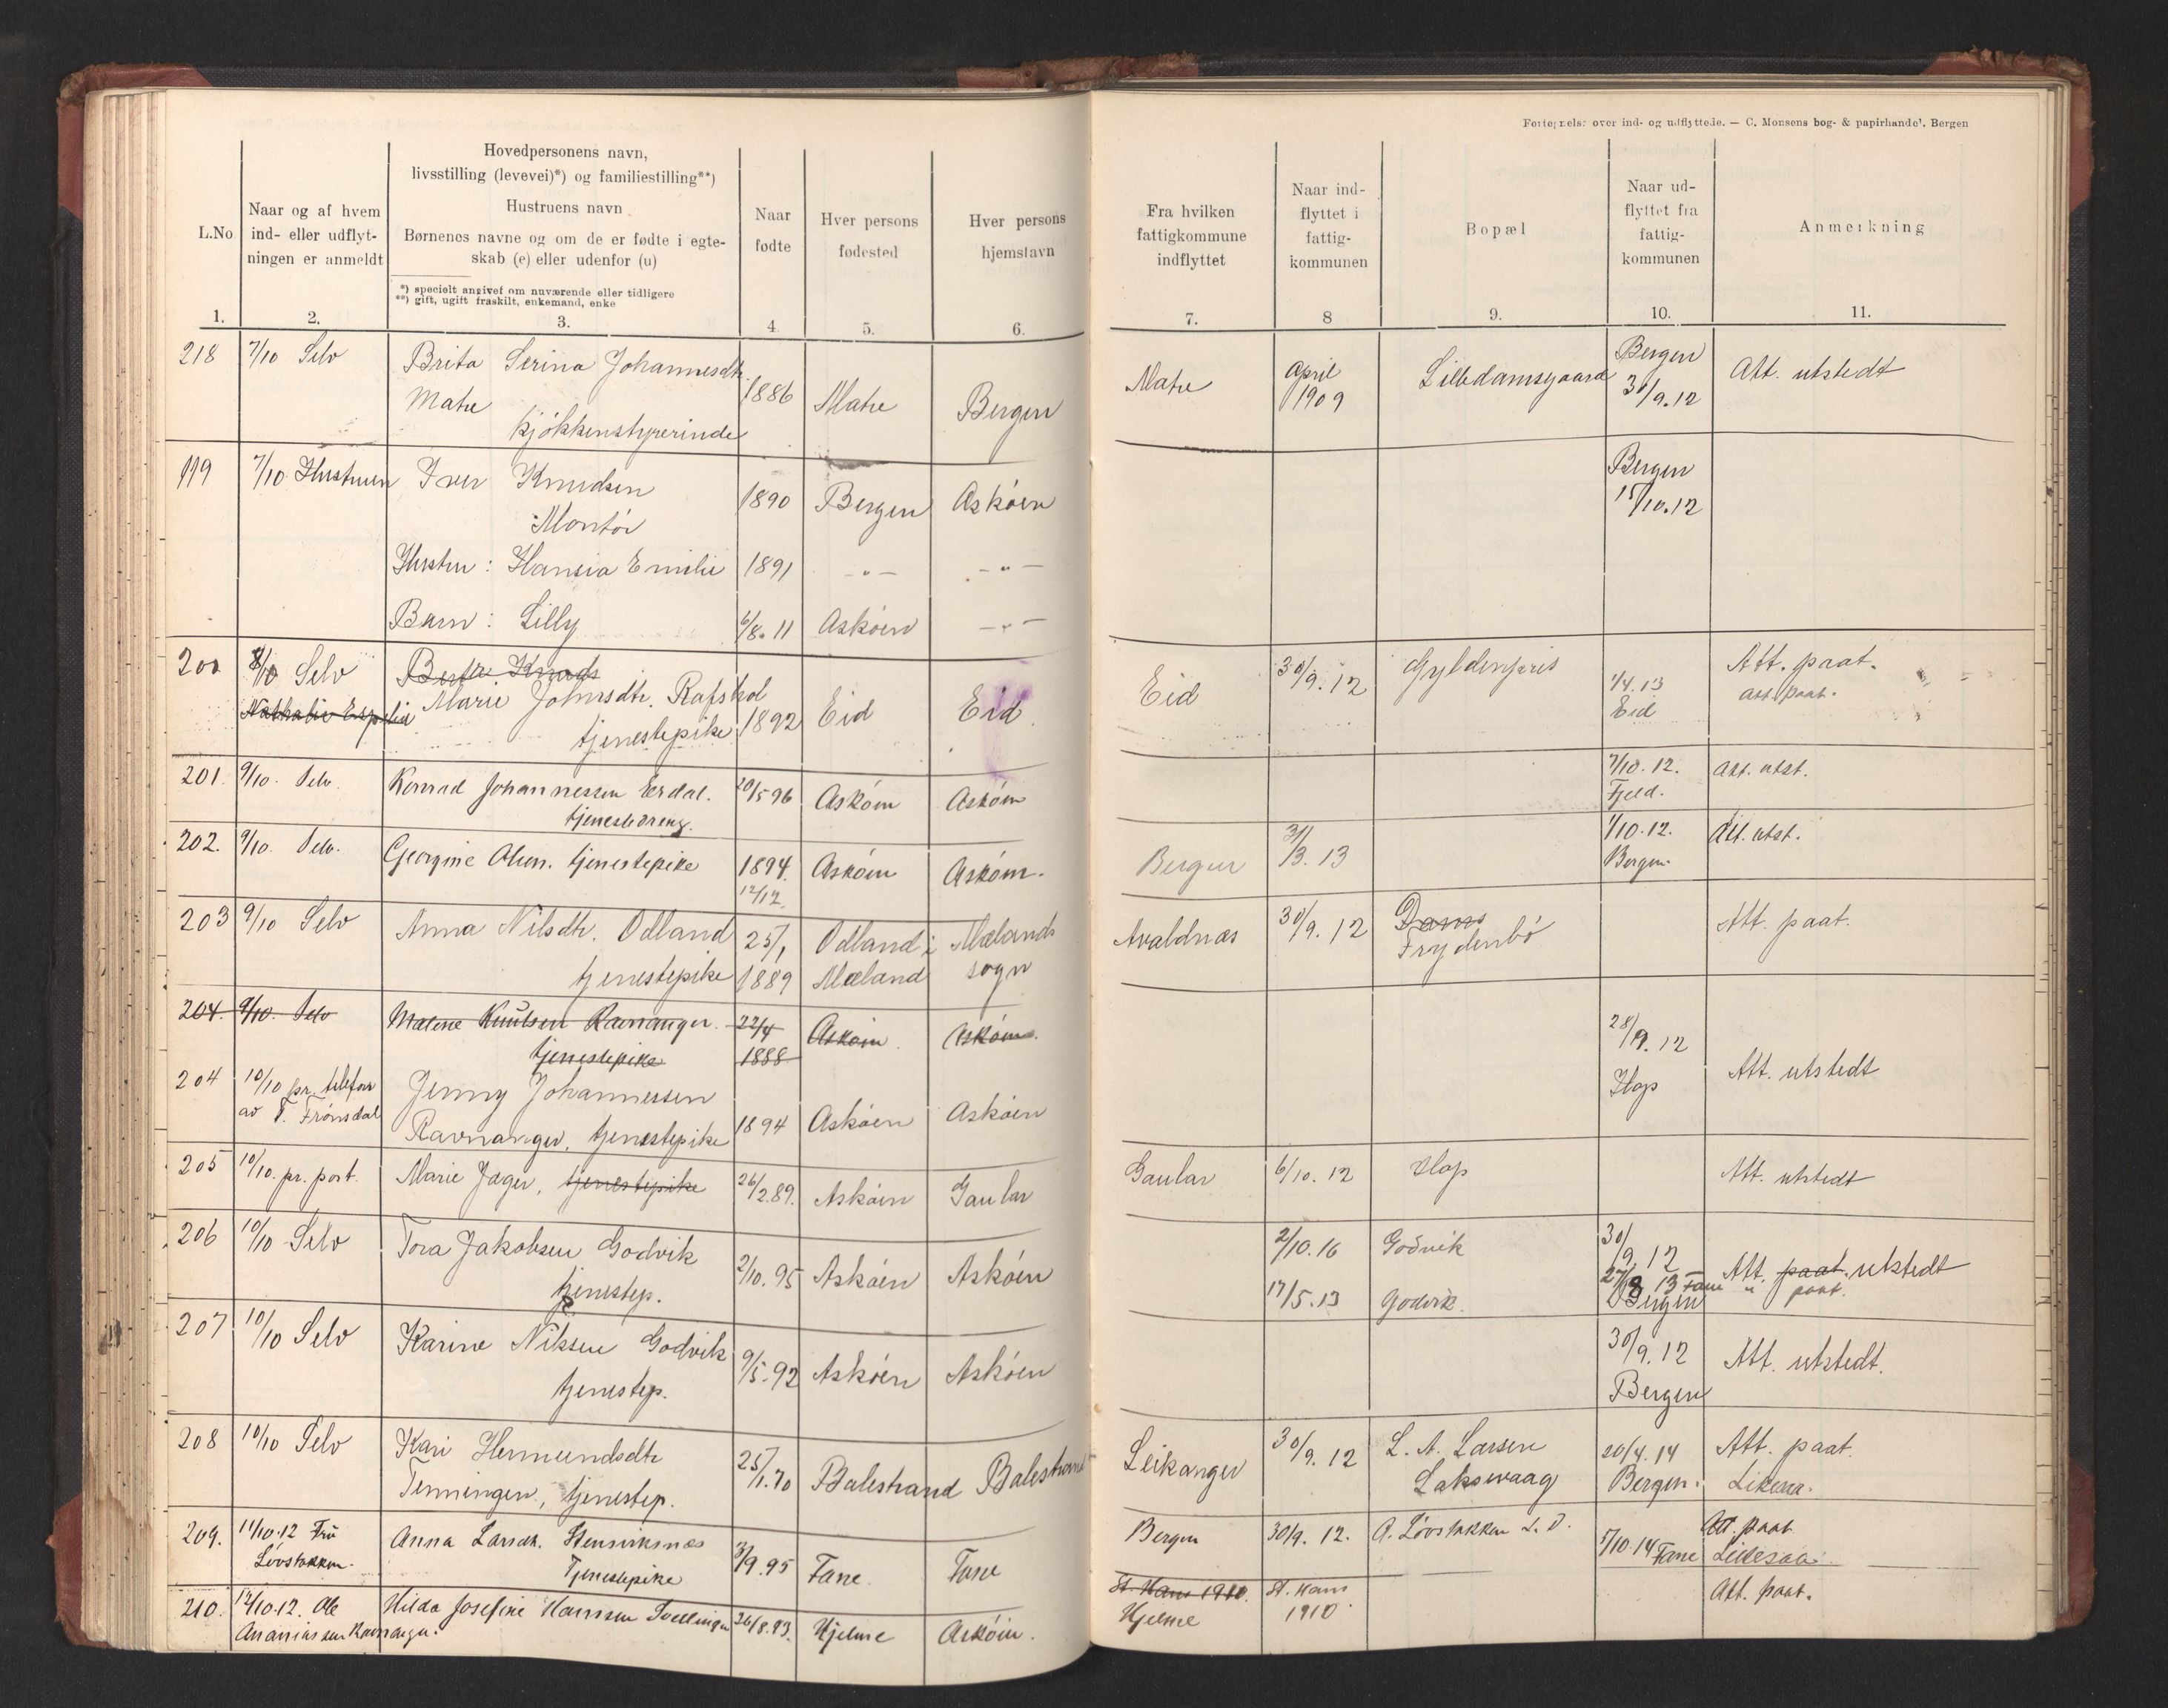 Fortegnelse over ind- og udflyttede. — C. Monsens bog- & papirhandel. Bergen
L.No
1.
Naar og af hvem
ind- eller udflyt-
ningen er anmeldt
2.
Hovedpersonens navn,
livsstilling (levevei)*) og familiestilling**)
Hustruens navn
Børnenes navne og om de er fødte i egte-
skab (e) eller udenfor (u)
*) specielt angivet om nuværende eller tidligere
**) gift, ugift fraskilt, enkemand, enke
3.
Naar
fødte
4
Hver persons
fødested
5.
Hver persons
hjemstavn
6.
Fra hvilken
fattigkommune
indflyttet
7.
Naar ind-
flyttet i
fattig-
kommunen
8
Bopæl
9.
Naar ud-
flyttet fra
fattig-
kommunen
10.
Anmerkning
11.
218 7/10 Selv Brita Serina Johannesdtr.
Matre kjøkkenstyrerinde 1886 Matre Bergen Matre April 1909 Lilledamsgaard Bergen 30/9.12 Att. utstedt
199 7/10 Hustruen Iver Knudsen
Montør 1890 Bergen Askøen Bergen 15/10.12
Hustru: Hansia Emilie 1891 -"- -"-
Barn: Lilly 6/8.11 Askøen -"-
200 8/10 Selv Berta Knuds
Nathalie Espelid Marie Johnsdtr. Rafskol
tjenestepike 1892 Eid Eid Eid 30/9.12 Gyldenpris 1/4.13 Eid Att. paat.
att. paat.
201. 9/10. Selv. Konrad Johannessen Erdal.
tjenestedreng. 20/5 96 Askøen Askøen 7/10.12. Fjeld. Att. utst.
202. 9/10. Selv. Georgine Olsen. tjenestepike 1894 12/12. Askøen Askøen. Bergen 31/3.13 1/10.12. Bergen. Att. utst.
203 9/10 Selv Anna Nilsdtr. Odland
tjenestepike 25/1 1889 Odland i Mæland Mælands sogn Avaldnæs 30/9.12 Dams
Frydenbø Att. paat.
204. 9/10. Selv Malene Knutsen Ravnanger.
tjenestepike 22/4 1888 Askøen Askøen.
204 10/10 pr. telefon
av T. Frønsdal Jenny Johannessen
Ravnanger, tjenestepike 1894 Askøen Askøen 28/9.12 Hop Att. utstedt
205 10/10. pr. post. Marie Jager, tjenestepike 26/2.89. Askøen Gaular Gaular 6/10.12 Hop Att. utstedt
206 10/10 Selv Tora Jakobsen Godvik
tjenestep. 2/10.95 Askøen Askøen 2/10.16 Godvik 30/9.12 Bergen Att. paat. utstedt
17/5.13 Godvik. 27/8 13 Fane " paat.
207 10/10 Selv Karine Nilssen Godvik
tjenestep. 9/5.92 Askøen Askøen 30/9.12 Bergen Att. utstedt.
208 10/10 Selv Kari Hermundsdtr
Tenningen, tjenestep. 25/1.70 Balestrand Balestrand Leikanger 30/9.12 L. A. Larsen
Laksevaag 20/4.14 Bergen. Att. paat.
209. 11/10.12 Fru
Løvstakken. Anna Larsdtr. Henriksnes
Tjenestepike 3/9.95 Fane Fane Bergen 30/9.12. A. Løvstakken L. D. 5/10.14 Fane Att. paat
210. 12/10.12. Ole
Ananiassen Ravnanger. Hilda Josefine Hanssen 26/8.93. Hjelme Askøen. St. Hans 1910.
Hjelme St. Hans 1910. Att. paat.